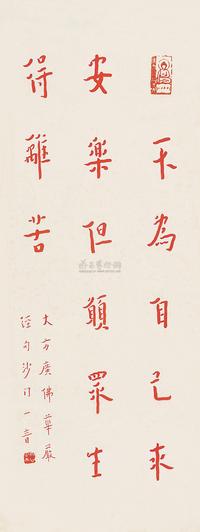 不為自己求
安樂但願眾生
得離苦
大方廣佛華嚴
經句沙門一音